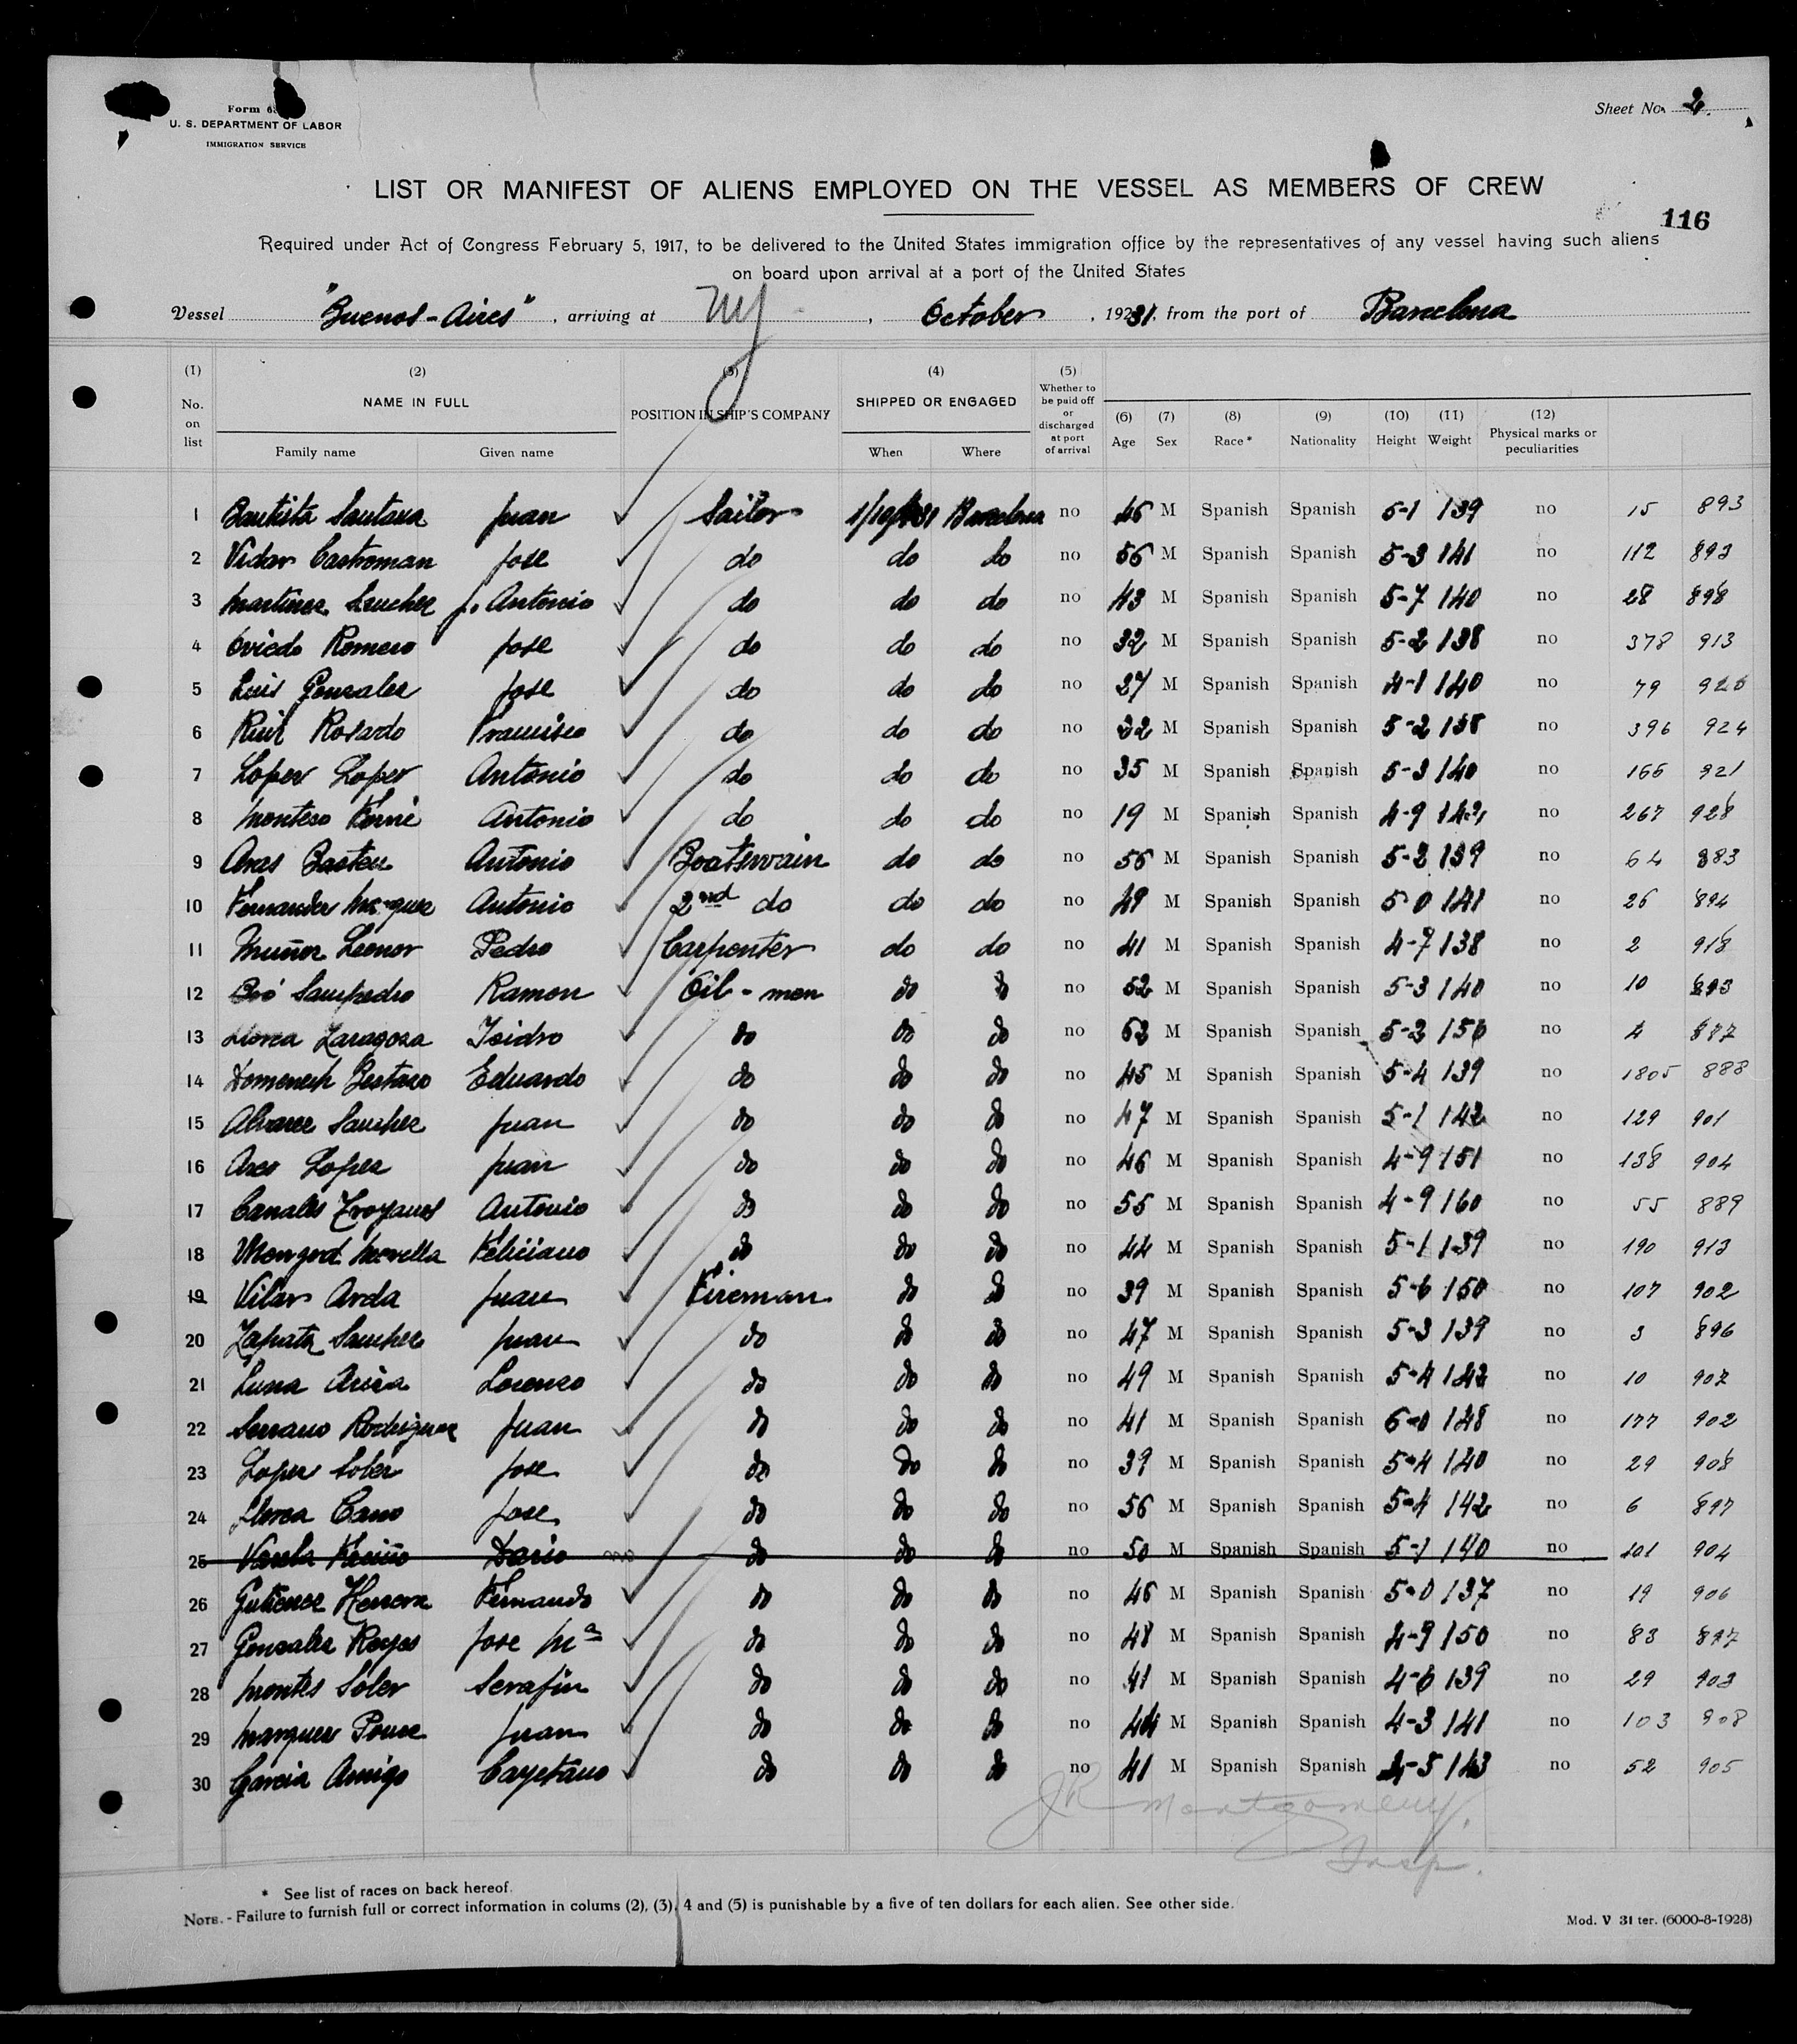 Form 6
U. S. DEPARTMENT OF LABOR
IMMIGRATION SERVICE
Sheet No. 2.
LIST OR MANIFEST OF ALIENS EMPLOYED ON THE VESSEL AS MEMBERS OF CREW
116
Required under Act of Congress February 5, 1917, to be delivered to the United States immigration office by the representatives of any vessel having such aliens
on board upon arrival at a port of the United States
Vessel "Buenos-Aires", arriving at NY, October, 1931, from the port of Barcelona
(1) No. on list (2) NAME IN FULL Family name Given name (3) POSITION IN SHIP'S COMPANY (4) SHIPPED OR ENGAGED When Where (5) Whether to be paid off or discharged at port of arrival (6) Age (7) Sex (8) Race* (9) Nationality (10) Height (11) Weight (12) Physical marks or peculiarities
1 Bautista Santana Juan Sailor 1/10/931 Barcelona no 46 M Spanish Spanish 5-1 139 no 15 893
2 Vidar Castroman Jose do do do no 56 M Spanish Spanish 5-3 141 no 112 893
3 Martinez Sanchez J. Antonio do do do no 43 M Spanish Spanish 5-7 140 no 28 898
4 Oviedo Romero Jose do do do no 32 M Spanish Spanish 5-2 138 no 378 913
5 Luis Gonzalez Jose do do do no 27 M Spanish Spanish 4-1 140 no 79 926
6 Ruiz Rosardo Francisco do do do no 32 M Spanish Spanish 5-2 138 no 396 924
7 Lopez Lopez Antonio do do do no 35 M Spanish Spanish 5-3 140 no 166 921
8 Montero Antonio do do do no 19 M Spanish Spanish 4-9 142 no 267 928
9 Ares Antonio Boatswain do do no 56 M Spanish Spanish 5-2 139 no 64 883
10 Fernandez Marquez Antonio 2nd do do do no 49 M Spanish Spanish 5-0 141 no 26 894
11 Muñoz Leonor Pedro Carpenter do do no 41 M Spanish Spanish 4-7 138 no 2 918
12 Sampedro Ramon Oil-man do do no 52 M Spanish Spanish 5-3 140 no 10 893
13 Llorca Zaragoza Isidro do do do no 62 M Spanish Spanish 5-2 156 no 4 877
14 Domenech Eduardo do do do no 45 M Spanish Spanish 5-4 139 no 1805 888
15 Alvarez Sanchez Juan do do do no 47 M Spanish Spanish 5-1 142 no 129 901
16 Arco Lopez Juan do do do no 46 M Spanish Spanish 4-9 151 no 138 904
17 Canales Troyanos Antonio do do do no 55 M Spanish Spanish 4-9 160 no 55 889
18 Feliciano do do do no 44 M Spanish Spanish 5-1 139 no 190 913
19 Vilar Arda Juan Fireman do do no 39 M Spanish Spanish 5-6 150 no 107 902
20 Zapata Sanchez Juan do do do no 47 M Spanish Spanish 5-3 139 no 3 896
21 Luna Ariza Lorenzo do do do no 49 M Spanish Spanish 5-4 142 no 10 907
22 Serrano Rodriguez Juan do do do no 41 M Spanish Spanish 6-0 148 no 177 902
23 Lopez Soler Jose do do do no 39 M Spanish Spanish 5-4 140 no 29 908
24 Llorca Cano Jose do do do no 56 M Spanish Spanish 5-4 142 no 6 897
25 Varela Dario no do do do no 50 M Spanish Spanish 5-1 140 no 101 904
26 Gutierrez Herrera Fernando do do do no 46 M Spanish Spanish 5-0 137 no 19 906
27 Gonzalez Reyes Jose Ma do do do no 48 M Spanish Spanish 4-9 150 no 83 897
28 Montes Soler Serafin do do do no 41 M Spanish Spanish 4-6 139 no 29 903
29 Marquez Ponce Juan do do do no 44 M Spanish Spanish 4-3 141 no 103 908
30 Garcia Amigo Cayetano do do do no 41 M Spanish Spanish 4-5 143 no 52 905
JR Montgomery,
Insp.
* See list of races on back hereof.
NOTE. - Failure to furnish full or correct information in colums (2), (3), 4 and (5) is punishable by a five of ten dollars for each alien. See other side.
Mod. V 31 ter. (6000-8-1928)